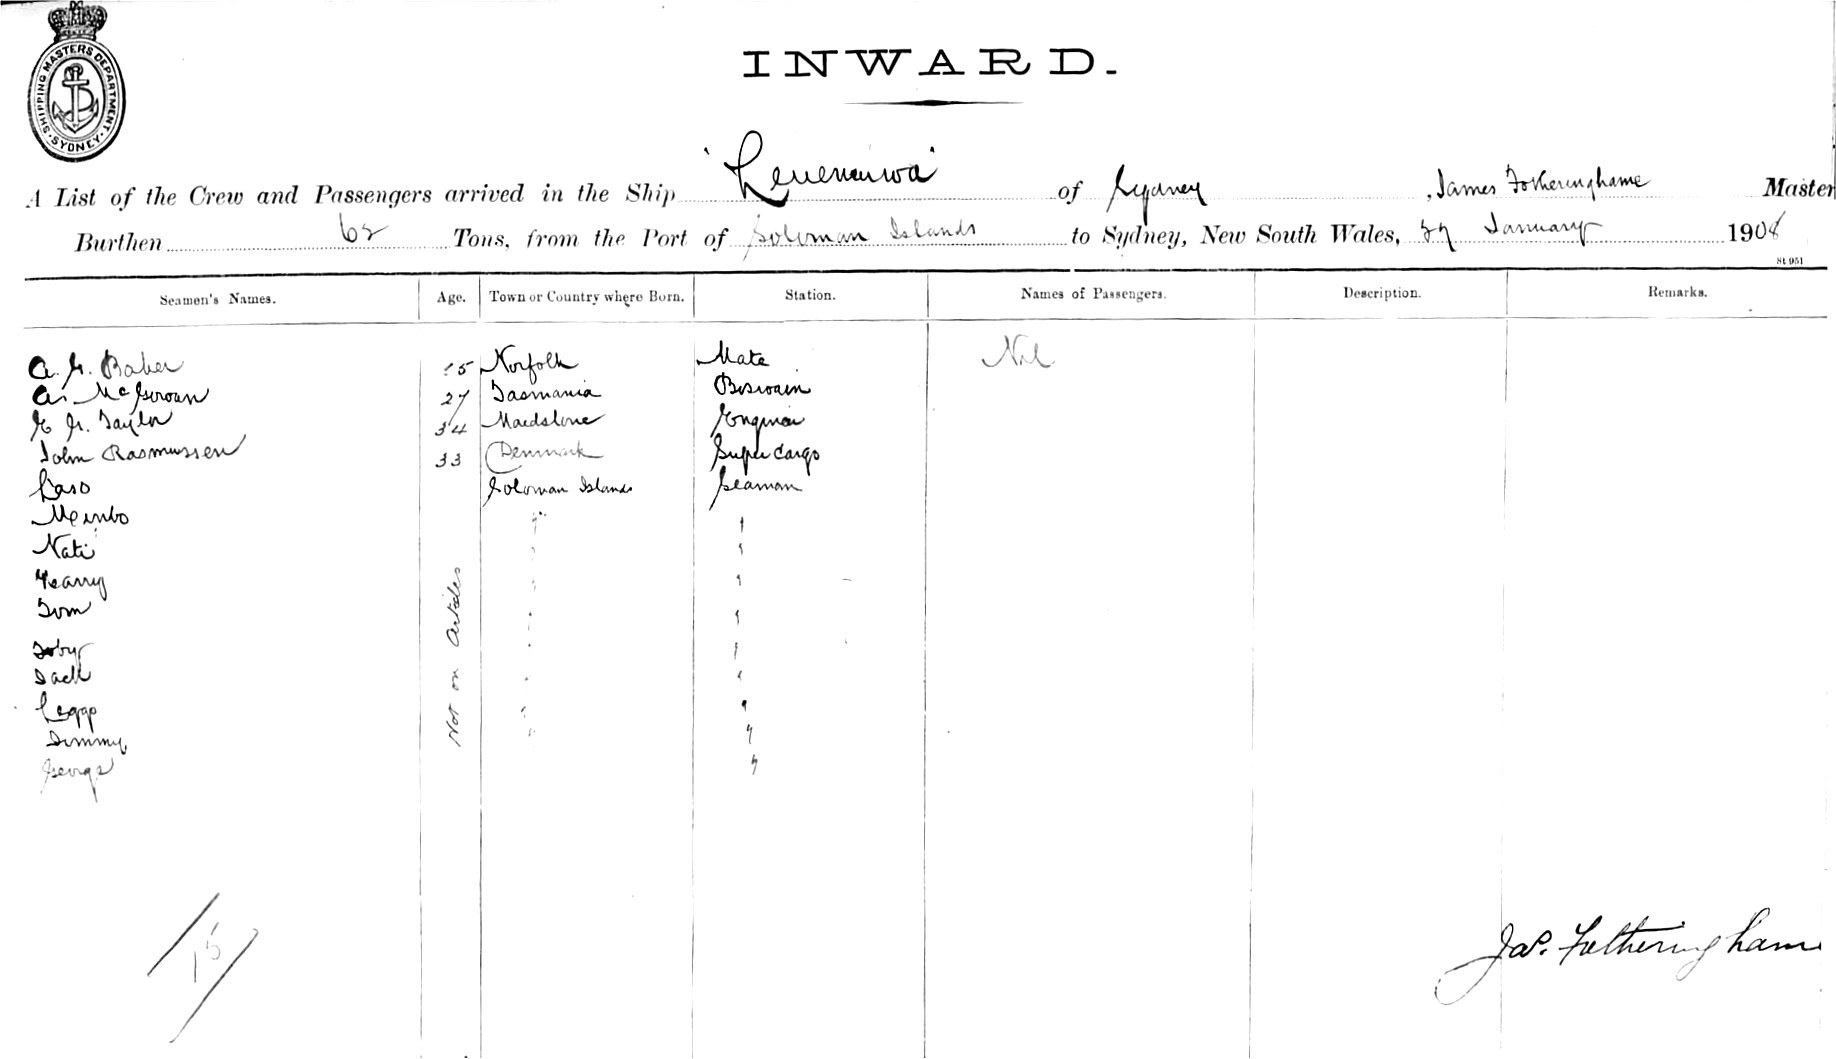 SHIPPING MASTERS DEPARTMENT. SYDNEY.
INWARD.
A List of the Crew and Passengers arrived in the Ship of Sydney, James Fotheringhame Master
Burthen 62 Tons, from the Port of Soloman Islands to Sydney, New South Wales, January 1908
St 951
Seamen's Names. Age. Town or Country where Born. Station. Names of Passengers. Description. Remarks.
A. G. Baker Norfolk Mate Nil
A. McGowan 27 Tasmania Boswain
E G. Taylor 34 Maidstone Engineer
John Rasmussen 33 Denmark Super Cargo
Laso Soloman Islands Seaman
Meinbo " "
Nati " "
Harry " "
Tom " "
Toby " "
Jack " "
Leggo " "
Jimmy " "
George "
Not on Articles
15
Jas. Fotheringham